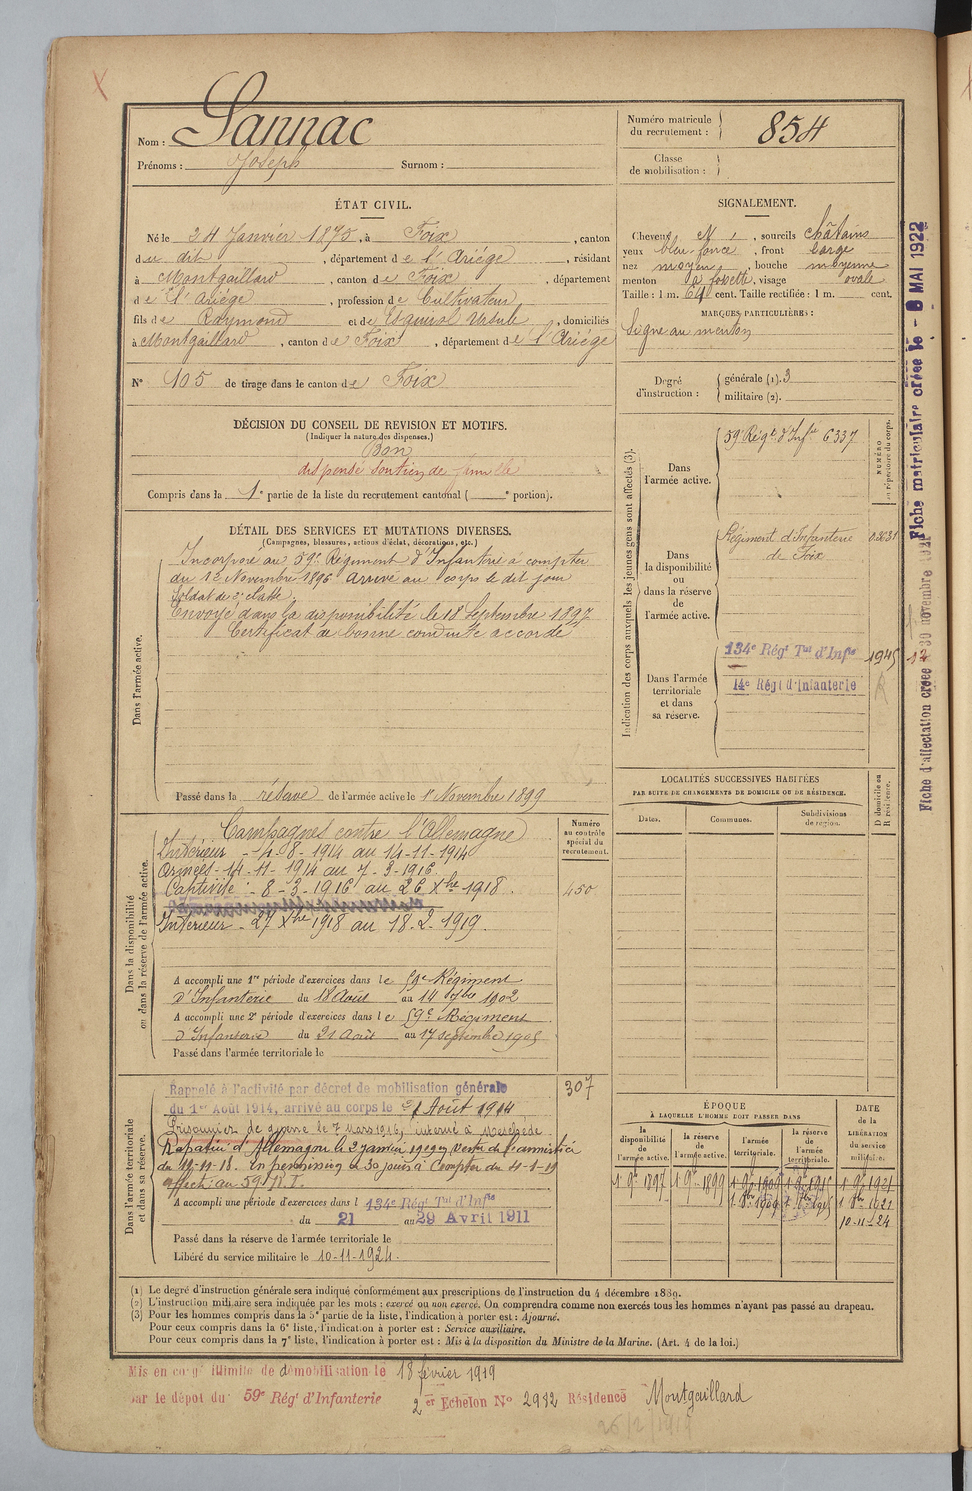 Nom : Sannac
Prénoms : Joseph Surnom :
Numéro matricule du recrutement : 854
Classe de mobilisation :
ÉTAT CIVIL.
Né le 24 Janvier 1875, à Foix, canton
du dit, département de l'Ariège, résidant
à Montgaillard, canton de Foix, département
de l'Ariège, profession de Cultivateur
fils de Raymond et de Ursule, domiciliés
à Montgaillard, canton de Foix, département de l'Ariège
N° 105 de tirage dans le canton de Foix
SIGNALEMENT.
Cheveux, sourcils châtains
yeux bleu foncé, front large
nez moyen, bouche moyenne
menton à fossette, visage ovale
Taille : 1 m. 64 cent. Taille rectifiée : 1 m. cent.
MARQUES PARTICULIÈRES :
Signe au menton
Degré d'instruction : générale (1). 3
militaire (2).
DÉCISION DU CONSEIL DE REVISION ET MOTIFS.
(Indiquer la nature des dispenses.)
Bon
dispensé soutien de famille
Compris dans la 1e partie de la liste du recrutement cantonal ( e portion).
DÉTAIL DES SERVICES ET MUTATIONS DIVERSES.
(Campagnes, blessures, actions d'éclat, décorations, etc.)
Dans l'armée active.
Incorporé au 59e Régiment d'Infanterie à compter
du 1e Novembre 1896 Arrivé au corps le dit jour
Soldat de 2e classe.
Envoyé dans la disponibilité le 18 Septembre 1897
Certificat de bonne conduite accordé
Passé dans la réserve de l'armée active le 1r Novembre 1899
Indication des corps auxquels les jeunes gens sont affectés (3).
NUMÉRO au répertoire du corps.
Dans l'armée active.
59e Régt d'Infie 6337
Dans la disponibilité ou dans la réserve de l'armée active.
Régiment d'Infanterie
de Foix
Dans l'armée territoriale et dans sa réserve.
134e Régt Tal d'Infie 1945
14e Régt d'Infanterie
LOCALITÉS SUCCESSIVES HABITÉES
PAR SUITE DE CHANGEMENTS DE DOMICILE OU DE RÉSIDENCE.
Dates. Communes. Subdivisions de région. D domicile ou R résidence.
Dans la disponibilité ou dans la réserve de l'armée active.
Numéro au contrôle spécial du recrutement.
Campagnes contre l'Allemagne
Intérieur - 4-8-1914 au 14-11-1914
Armées - 14-11-1914 au 7-3-1916
Captivité : 8-3-1916 au 26 Xbre 1918.
450
Intérieur - 27 Xbre 1918 au 18-2-1919.
A accompli une 1re période d'exercices dans le 59e Régiment
d'Infanterie du 18 Août au 14 7bre 1902
A accompli une 2e période d'exercices dans le 59e Régiment
d'Infanterie du 21 Août au 17 septembre 1905
Passé dans l'armée territoriale le
Dans l'armée territoriale et dans sa réserve.
307
Rappelé à l'activité par décret de mobilisation générale
du 1er Août 1914, arrivé au corps le Août 1914
Prisonnier de guerre le 7 Mars 1916, interné à Meschede
Rapatrié d'Allemagne le 2 janvier 1919 en vertu de l'armistice
du 11-11-18. En permission de 30 jours à compter du 4-1-19
affecté au 59 R.I.
A accompli une période d'exercices dans l 134e Régt Tal d'Infie
du 21 au 29 Avril 1911
Passé dans la réserve de l'armée territoriale le
Libéré du service militaire le 10-11-1924.
ÉPOQUE
À LAQUELLE L'HOMME DOIT PASSER DANS
DATE DE LA LIBÉRATION du service militaire.
la disponibilité de l'armée active. la réserve de l'armée active. l'armée territoriale. la réserve de l'armée territoriale.
1 9bre 1897 1 9bre 1899 1 9bre 1909 1 9bre 1915 1 9bre 1921
1 8bre 1909 1 8bre 1915 1 8bre 1921
10-11-24
(1) Le degré d'instruction générale sera indiqué conformément aux prescriptions de l'instruction du 4 décembre 1889.
(2) L'instruction militaire sera indiquée par les mots : exercé ou non exercé. On comprendra comme non exercés tous les hommes n'ayant pas passé au drapeau.
(3) Pour les hommes compris dans la 5e partie de la liste, l'indication à porter est : Ajourné.
Pour ceux compris dans la 6e liste, l'indication à porter est : Service auxiliaire.
Pour ceux compris dans la 7e liste, l'indication à porter est : Mis à la disposition du Ministre de la Marine. (Art. 4 de la loi.)
Mis en congé illimité de démobilisation le 18 février 1919
par le dépôt du 59e Régt d'Infanterie 2e Echelon N° 2982 Résidence Montgaillard
26/2/1919
Fiche matriculaire créée le - 8 MAI 1922
Fiche d'affectation créée 30 novembre 1921